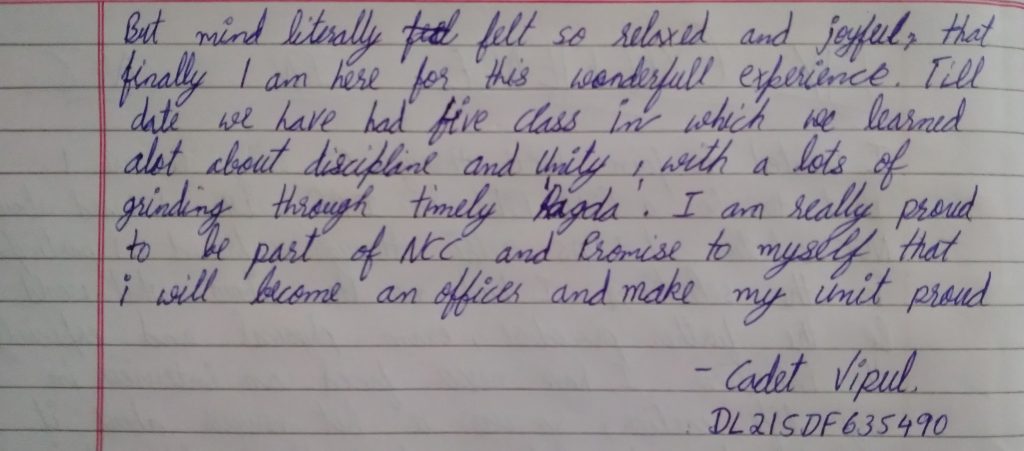 But mind literally felt so relaxed and joyful, that
finally I am here for this wonderfull experience. Till
date we have had five class in which we learned
alot about discipline and Unity, with a lots of
grinding through timely 'Ragda'. I am really proud
to be part of NCC and Promise to myself that
i will become an officer and make my unit proud
- Cadet Vipul.
DL21SDF635490